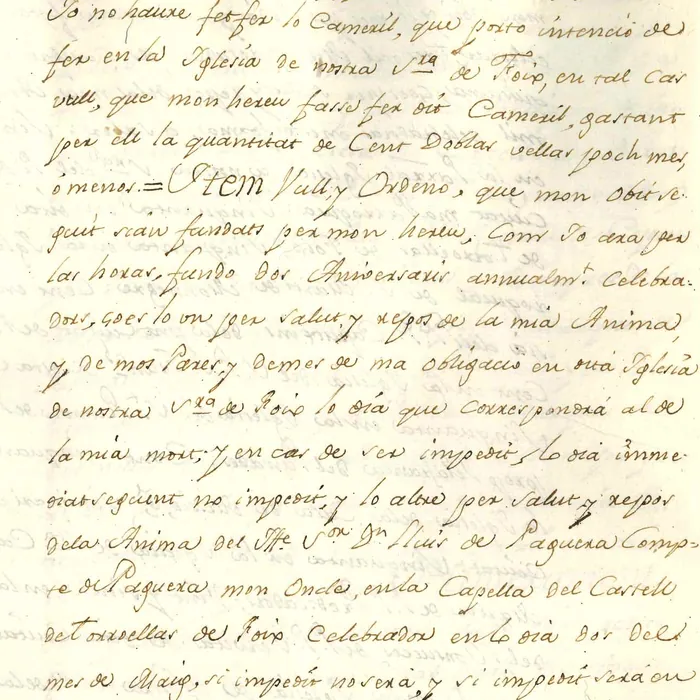 Jo no haure fet fer lo Cameril, que porto intenció de
fer en la Iglesia de nostra Sra de Foix, en tal cas
vull, que mon hereu fasse fer dit Cameril, gastant
per ell la quantitat de Cent Doblas vellas poch mes,
ó menos = Ittem Vull, y Ordeno, que mon obit se-
guit sian fundats per mon hereu, Com Jo ara per
las horas, fundo dos Aniversaris annualmt. Celebra-
dors, ço es lo un per salut, y repos de la mia Anima,
y, de mos Pares, y demes de ma obligacio en dita Iglesia
de nostra Sra de Foix lo dia que correspondrá al de
la mia mort; y en cas de ser impedit, lo dia imme-
diat seguent no impedit, y lo altre per salut, y repos
dela Anima del Itte. Sor Dn Lluis de Paguera Comp-
te de Paguera mon Oncle, en la Capella del Castell
de Torroellas de Foix Celebrador en lo dia dos del
mes de Maig, si impedit no será, y si impedit será en